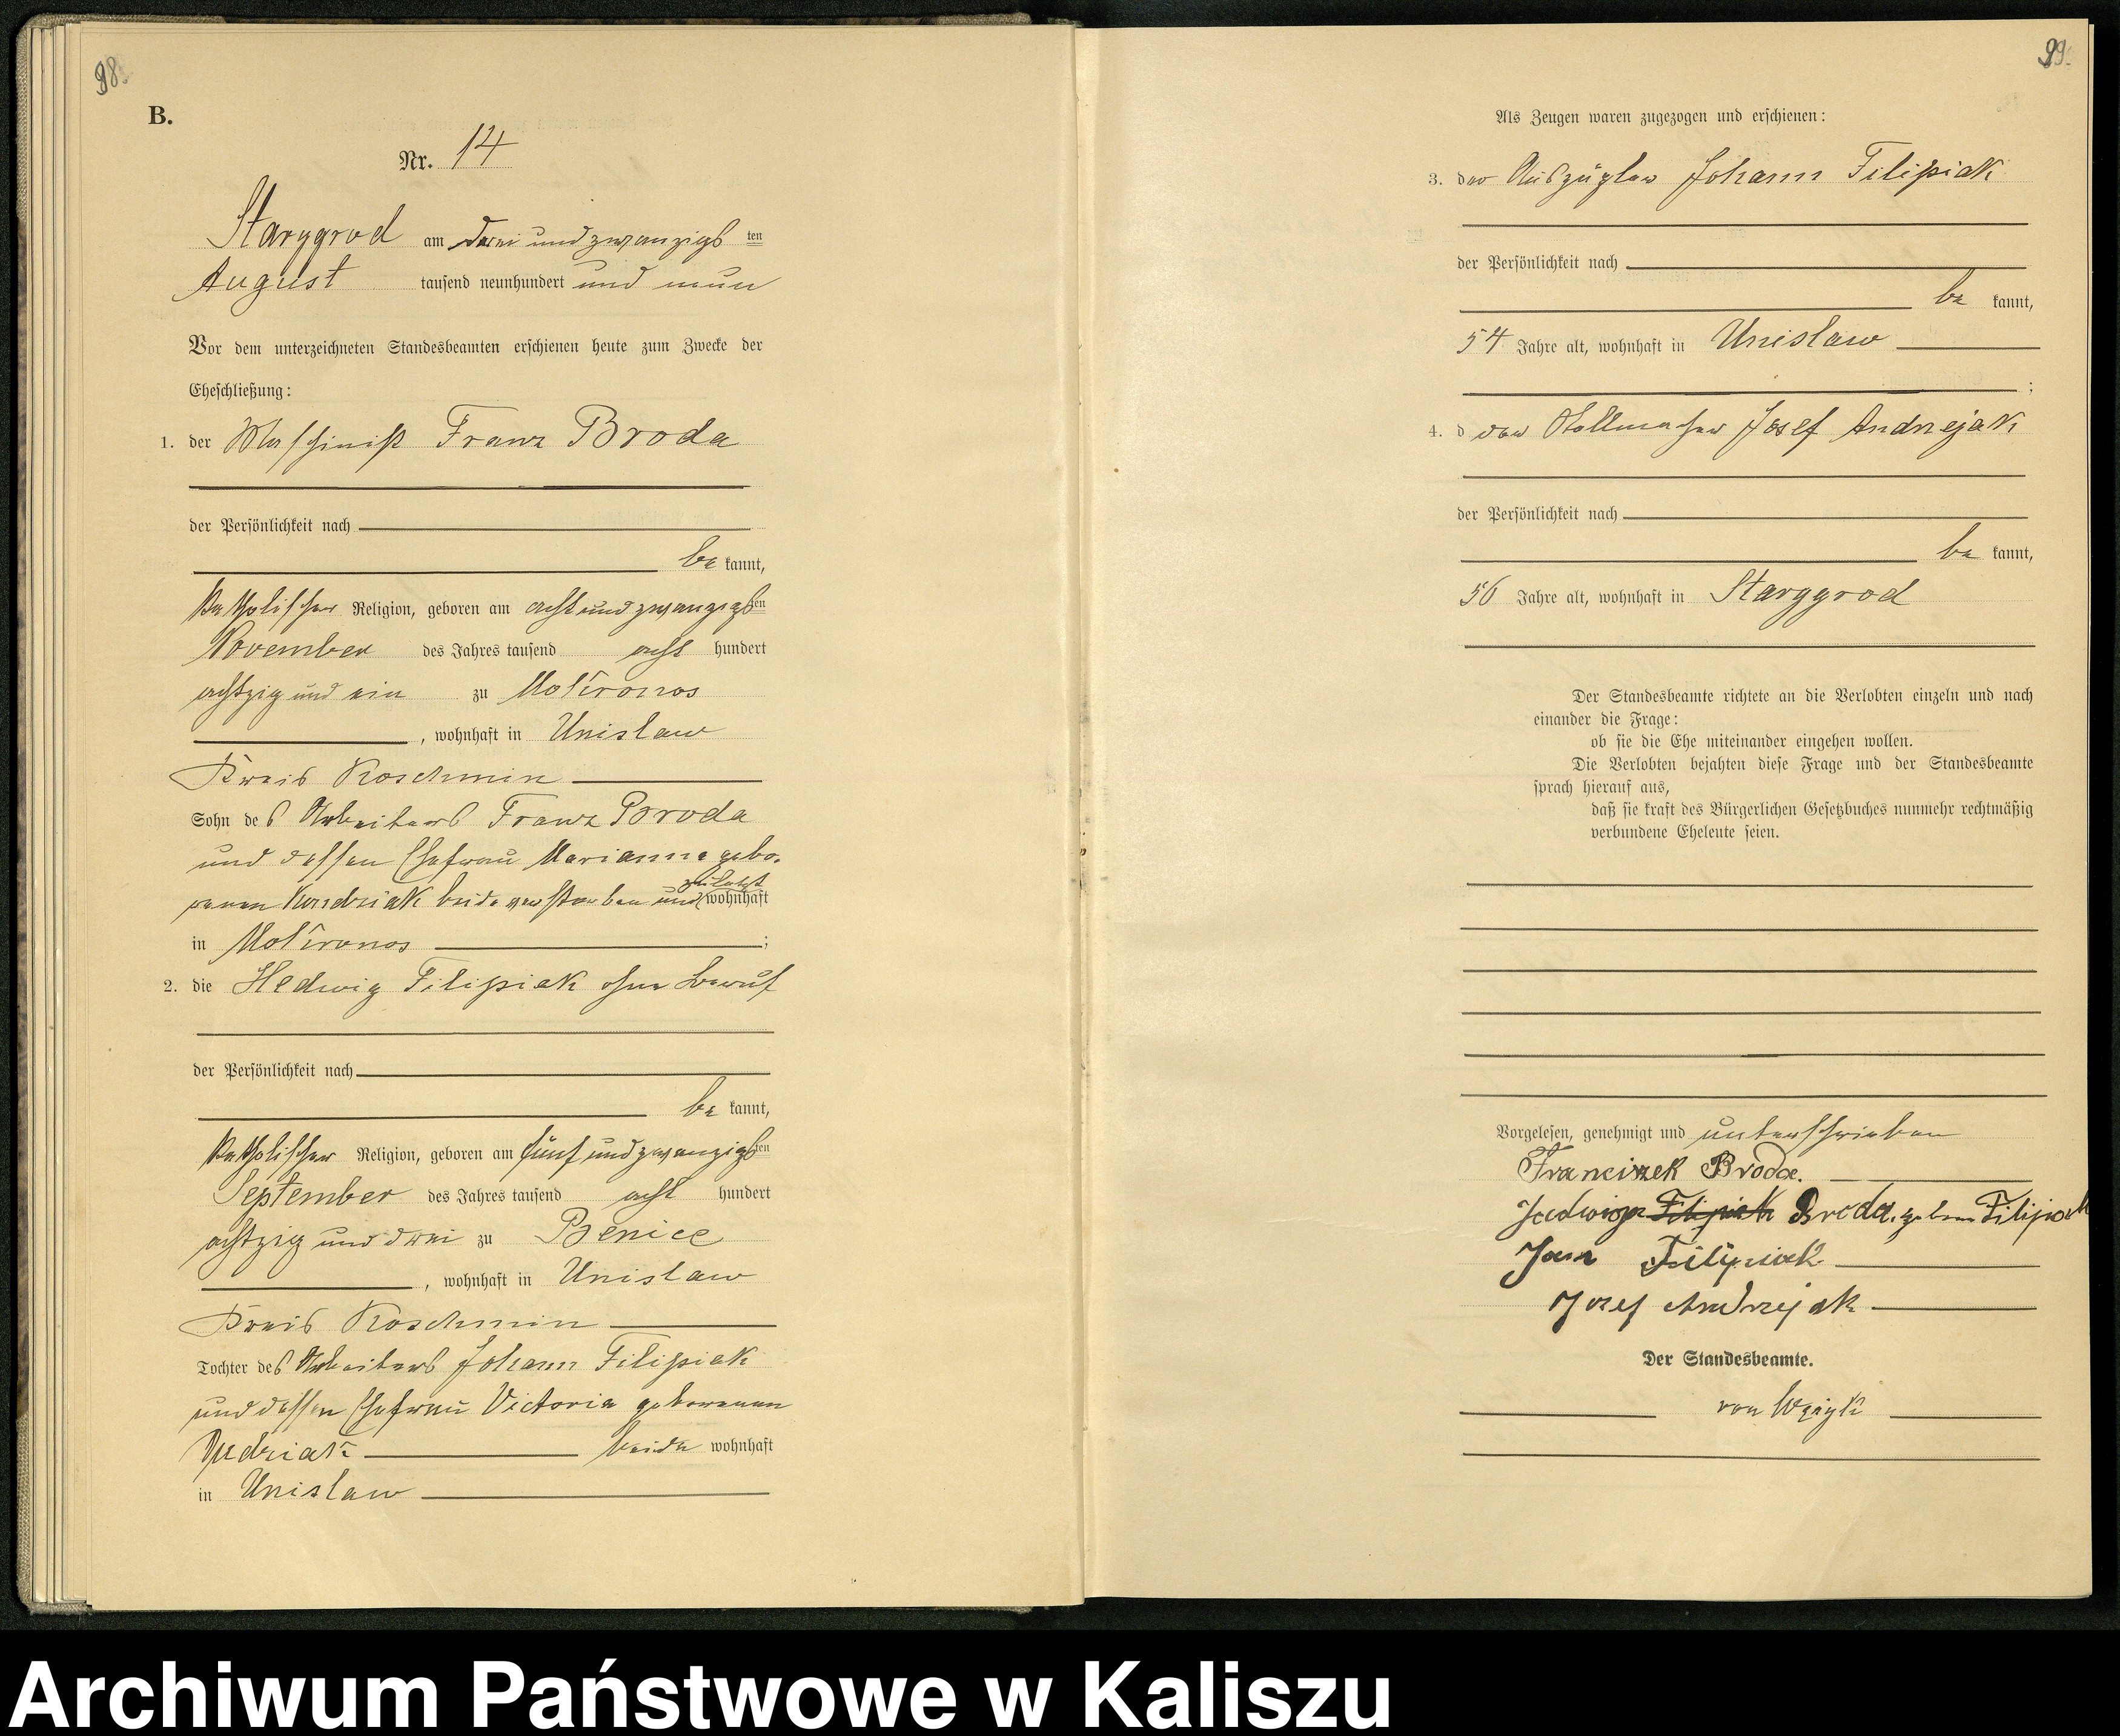 98.
B.
Nr. 14
Starygrod am drei und zwanzigs ten
August tausend neunhundert und neun
Vor dem unterzeichneten Standesbeamten erschienen heute zum Zwecke der
Eheschließung:
1. der Maschinist Franz Broda
der Persönlichkeit nach
be kannt,
katholischer Religion, geboren am acht und zwanzigsten
November des Jahres tausend acht hundert
achtzig und ein zu Mokronos
, wohnhaft in Unislaw
Kreis Koschmin
Sohn des Arbeiters Franz Broda
und dessen Ehefrau Marianna gebo-
renen beide verstorben und zuletzt wohnhaft
in Mokronos ;
2. die Hedwig Filipiak ohne Beruf
der Persönlichkeit nach
be kannt,
katholischer Religion, geboren am fünf und zwanzigsten
September des Jahres tausend acht hundert
achtzig und drei zu Benice
, wohnhaft in Unislaw
Kreis Koschmin
Tochter des Arbeiters Johann Filipiak
und dessen Ehefrau Victoria geborenen
beide wohnhaft
in Unislaw
99.
Als Zeugen waren zugezogen und erschienen:
3. der Auszügler Johann Filipiak
der Persönlichkeit nach
be kannt,
54 Jahre alt, wohnhaft in Unislaw
;
4. d der Stellmacher Josef Andrzejak
der Persönlichkeit nach
be kannt,
56 Jahre alt, wohnhaft in Starygrod
Der Standesbeamte richtete an die Verlobten einzeln und nach
einander die Frage:
ob sie die Ehe miteinander eingehen wollen.
Die Verlobten bejahten diese Frage und der Standesbeamte
sprach hierauf aus,
daß sie kraft des Bürgerlichen Gesetzbuches nunmehr rechtmäßig
verbundene Eheleute seien.
Vorgelesen, genehmigt und unterschrieben
Franciszek Broda.
Jadwiga Filipiak Broda, geboren Filipiak
Jan Filipiak
Jozef Andrzejak
Der Standesbeamte.
von
Archiwum Państwowe w Kaliszu